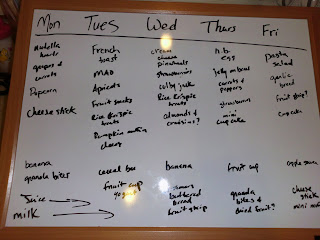 Mon Tues Wed Thurs Fri
nutella
French
toast
cream
cheese
pinwheels
h.b.
egg
pasta
salad
carrots
MAO
strawberries
jelly
carrots &
peppers
garlic
bread
Popcorn
Apricots
colby jack
Fruit snacks
Rice Krispie
treats
strawberries
fruit strip?
cheese stick
Rice Krispie
treats
almonds &
craisins?
mini
cupcake
cupcake
Pumpkin
chewy
banana
granola bites
cereal bar
banana
fruit cup
apple sauce
fruit cup
yogurt
buttered
bread
fruit strip
granola
bites &
dried fruit?
cheese
stick
mini
Juice
milk